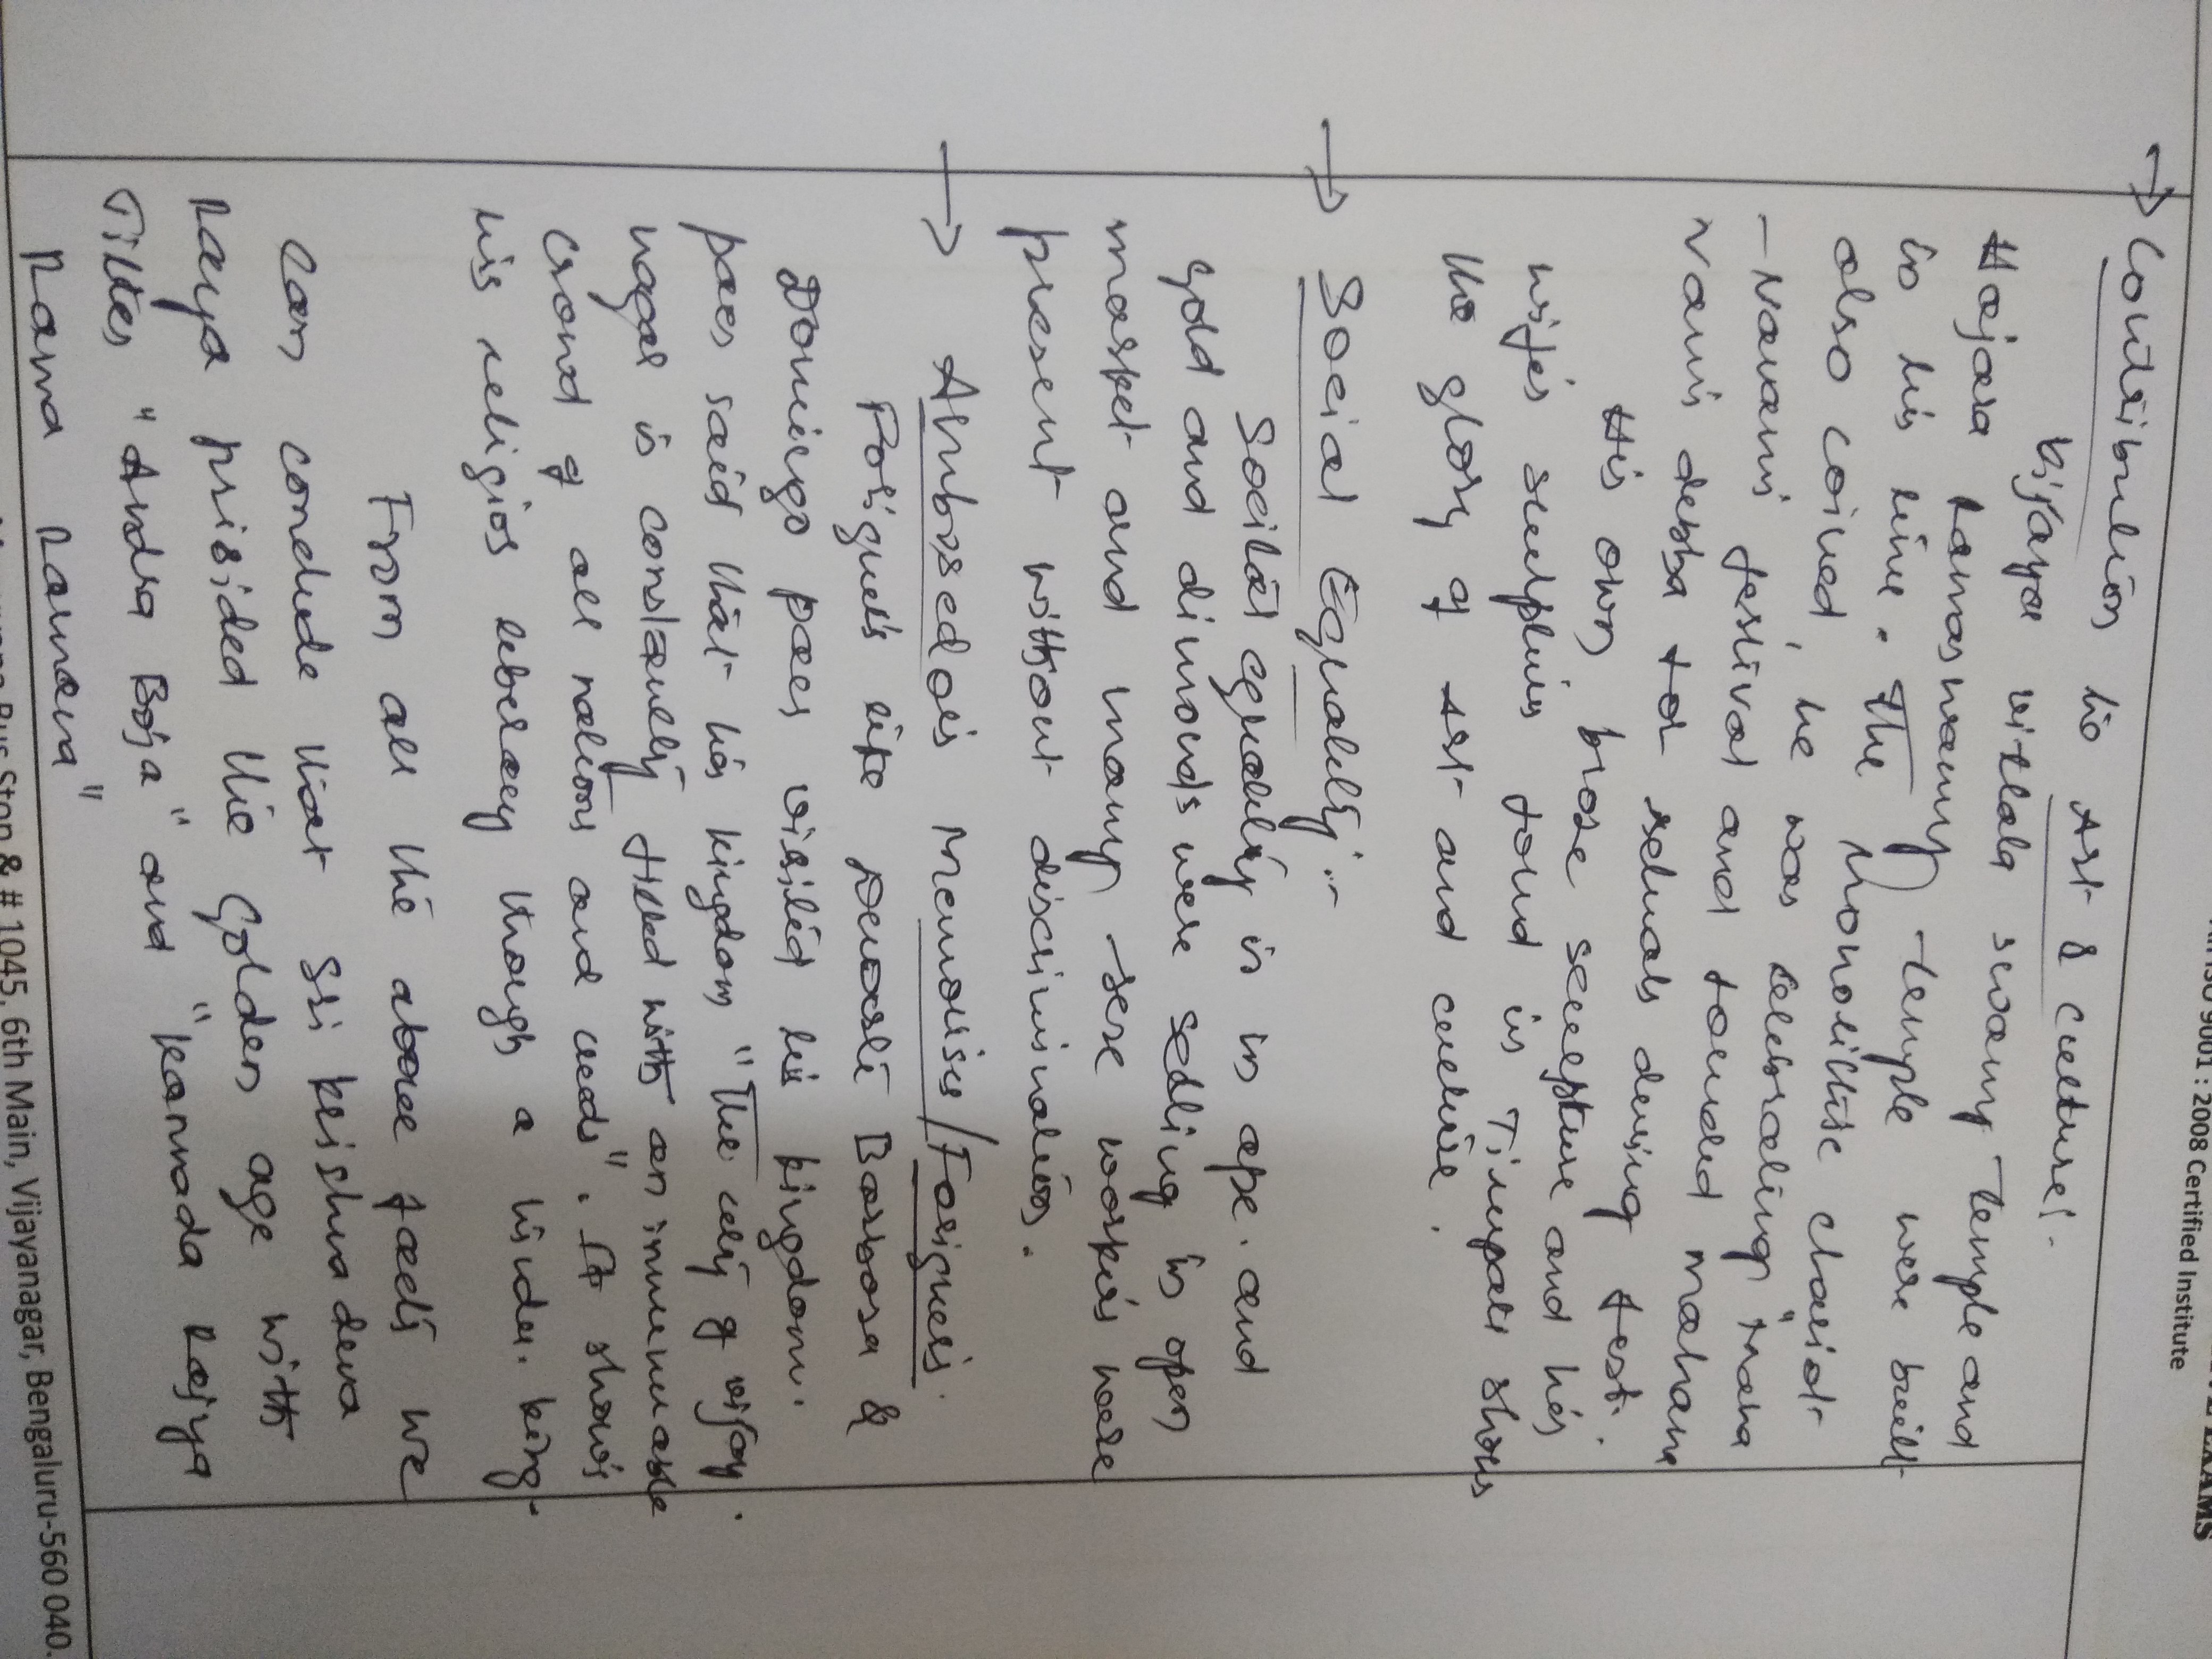 9001 : 2008 Certified Institute
EXAMS
→ Contribution to Art & culture:-
Vijaya vittala swamy temple and
Hajara Ramaswamy temple were built
in his time. The Monolithic chariot
also coined, he was celebrating "Mana
-Navami festival and founded mahana
vami debba for rituals during fest.
His own broze sculpture and his
wifes sculpture found in Tirupati shows
the glory of Art and culture.
→ Social Equality:-
Societal equality is in ape. and
gold and dimonds were selling in open
market and many -sex workers were
present without discrimination.
→ Ambassedors Memoirs/Forigners.
Forigners like Duarte Barbosa &
Domingo paes visited his kingdom.
paes said that his kingdom "The city of vijay.
nagar is constantly filled with an innumerable
crowd of all nations and ceeds". It shows
his religios leberaly though a hindu. king.
From all the above facts we
can conclude that Sri krishna deva
Raya prisided the Golden age with
Titles "Andra Boja" and "kannada Rajya
Rama Ramana"
Bus Stop & # 1045, 6th Main, Vijayanagar, Bengaluru-560 040.